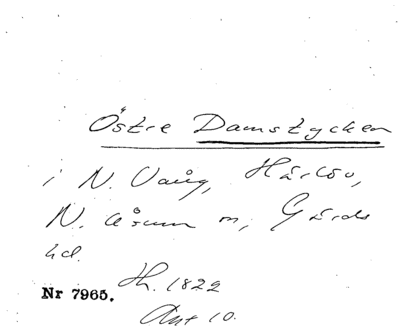 Östre Damstycken
i N. Vång, Härlöv,
N. Åsum m, Gärds
hd.
Nr 7965. Th. 1822
Akt 10.